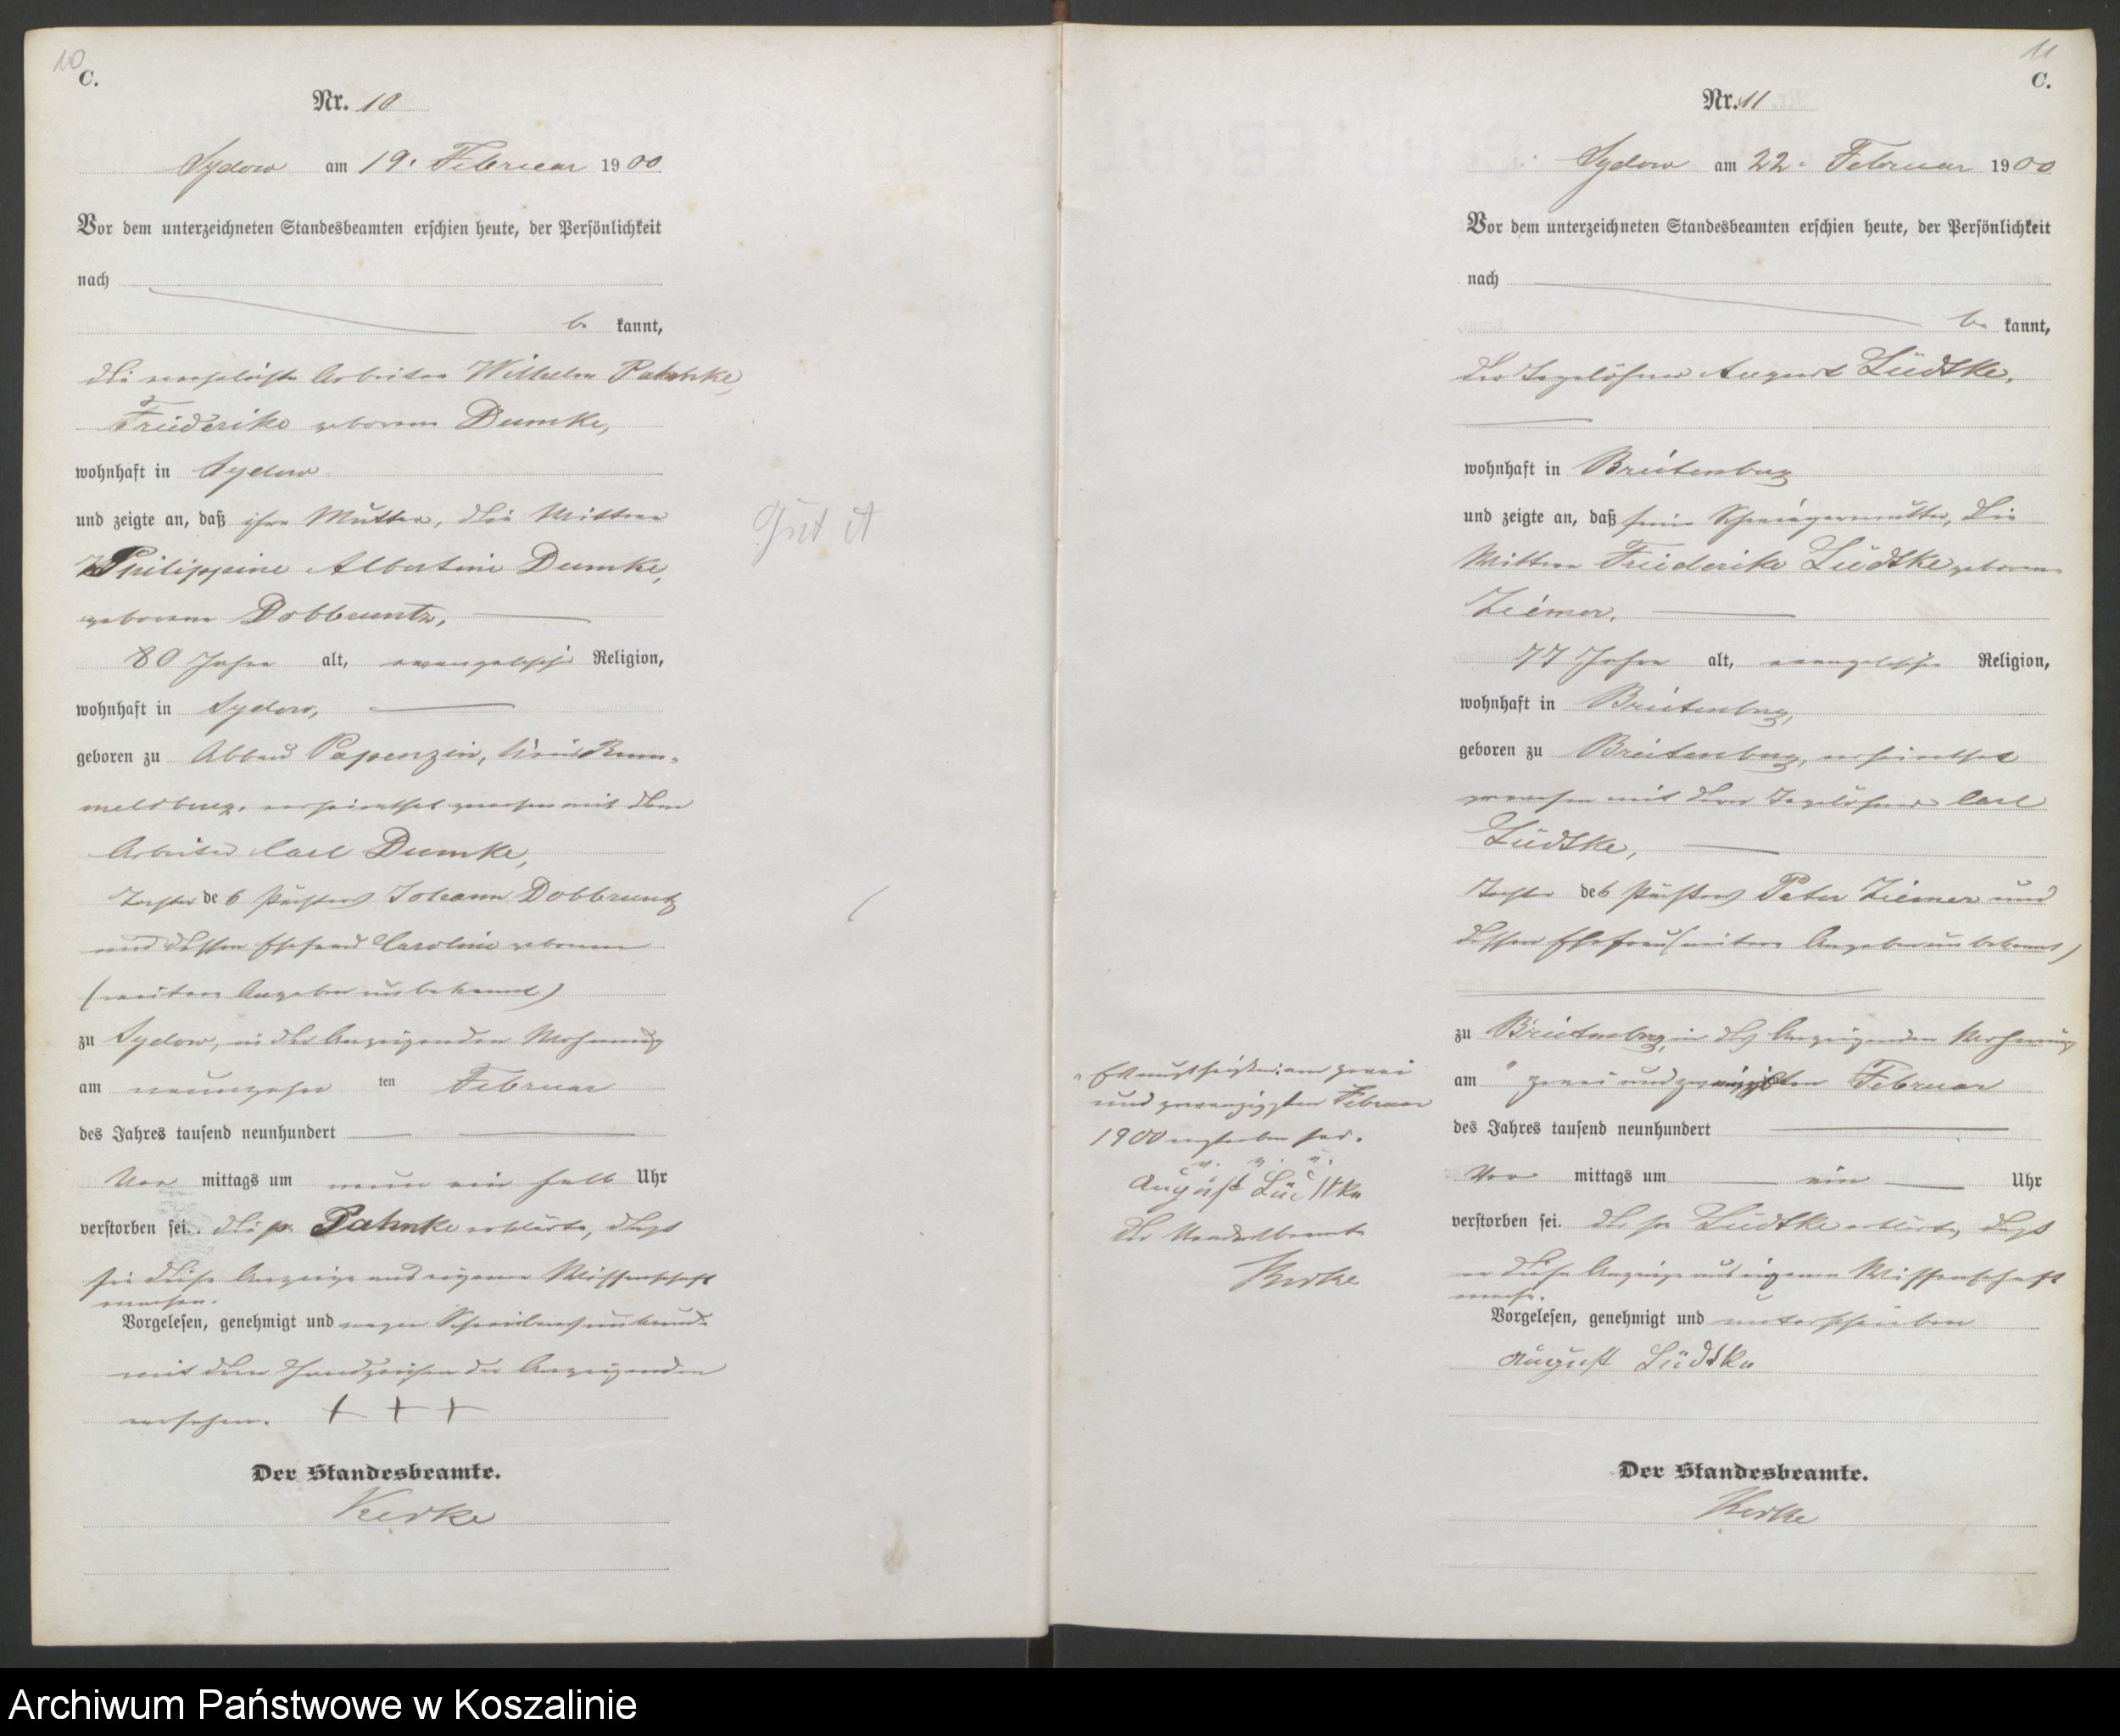 10
C.
Nr. 10
Sydow am 19. Februar 1900
Vor dem unterzeichneten Standesbeamten erschien heute, der Persönlichkeit
nach
be kannt,
die verehelichte Arbeiter Wilhelm Pahnke,
Friederike geborene Dumke,
wohnhaft in Sydow
und zeigte an, daß ihre Mutter, die Wittwe
Philippine Albertine Dumke,
geborene Dobbruntz,
80 Jahre alt, evangelische Religion,
wohnhaft in Sydow,
geboren zu Abbau Papenzin, Kreis Rum-
melsburg, verheirathet gewesen mit dem
Arbeiter Carl Dumke,
Tochter des Pächters Johann Dobbruntz
und dessen Ehefrau Caroline geborene
(weitere Angaben unbekannt)
zu Sydow, in der Anzeigenden Wohnung
am neunzehn ten Februar
des Jahres tausend neunhundert
Vor mittags um neun ein halb Uhr
verstorben sei. Die p. Pahnke erklärte, daß
sie diese Anzeige aus eigener Wissenschaft
mache.
Vorgelesen, genehmigt und wegen Schreibensunkunde
mit dem Handzeichen der Anzeigenden
versehen. + + +
Der Standesbeamte.
Kerke
Gut A
11
C.
Nr. 11
Sydow am 22. Februar 1900
Vor dem unterzeichneten Standesbeamten erschien heute, der Persönlichkeit
nach
be kannt,
der Tagelöhner August Lüdtke,
wohnhaft in Breitenberg
und zeigte an, daß seine Schwiegermutter, die
Wittwe Friederike Lüdtke geborene
Ziemer,
77 Jahre alt, evangelische Religion,
wohnhaft in Breitenberg,
geboren zu Breitenberg, verheirathet
gewesen mit dem Tagelöhner Carl
Lüdtke,
Tochter des Pächters Peter Ziemer und
dessen Ehefrau (weitere Angaben unbekannt)
zu Breitenberg, in des Anzeigenden Wohnung
am " zwei und zwanzigsten Februar
des Jahres tausend neunhundert
Vor mittags um ein Uhr
verstorben sei. Der p. Lüdtke erklärte, daß
er diese Anzeige aus eigener Wissenschaft
mache.
Vorgelesen, genehmigt und unterschrieben
August Lüdtke
Der Standesbeamte.
Kerke
am zwei
und zwanzigsten Februar
1900 verstorben sei.
v. g. u.
August Lüdtke
Der Standesbeamte
Kerke
Archiwum Państwowe w Koszalinie